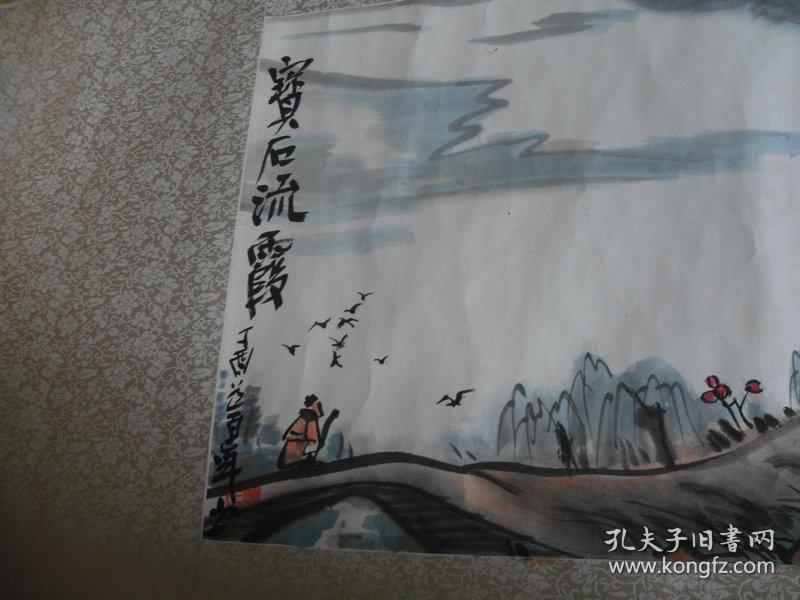 寶石流霞
丁酉
百年
孔夫子旧書网
www.kongfz.com